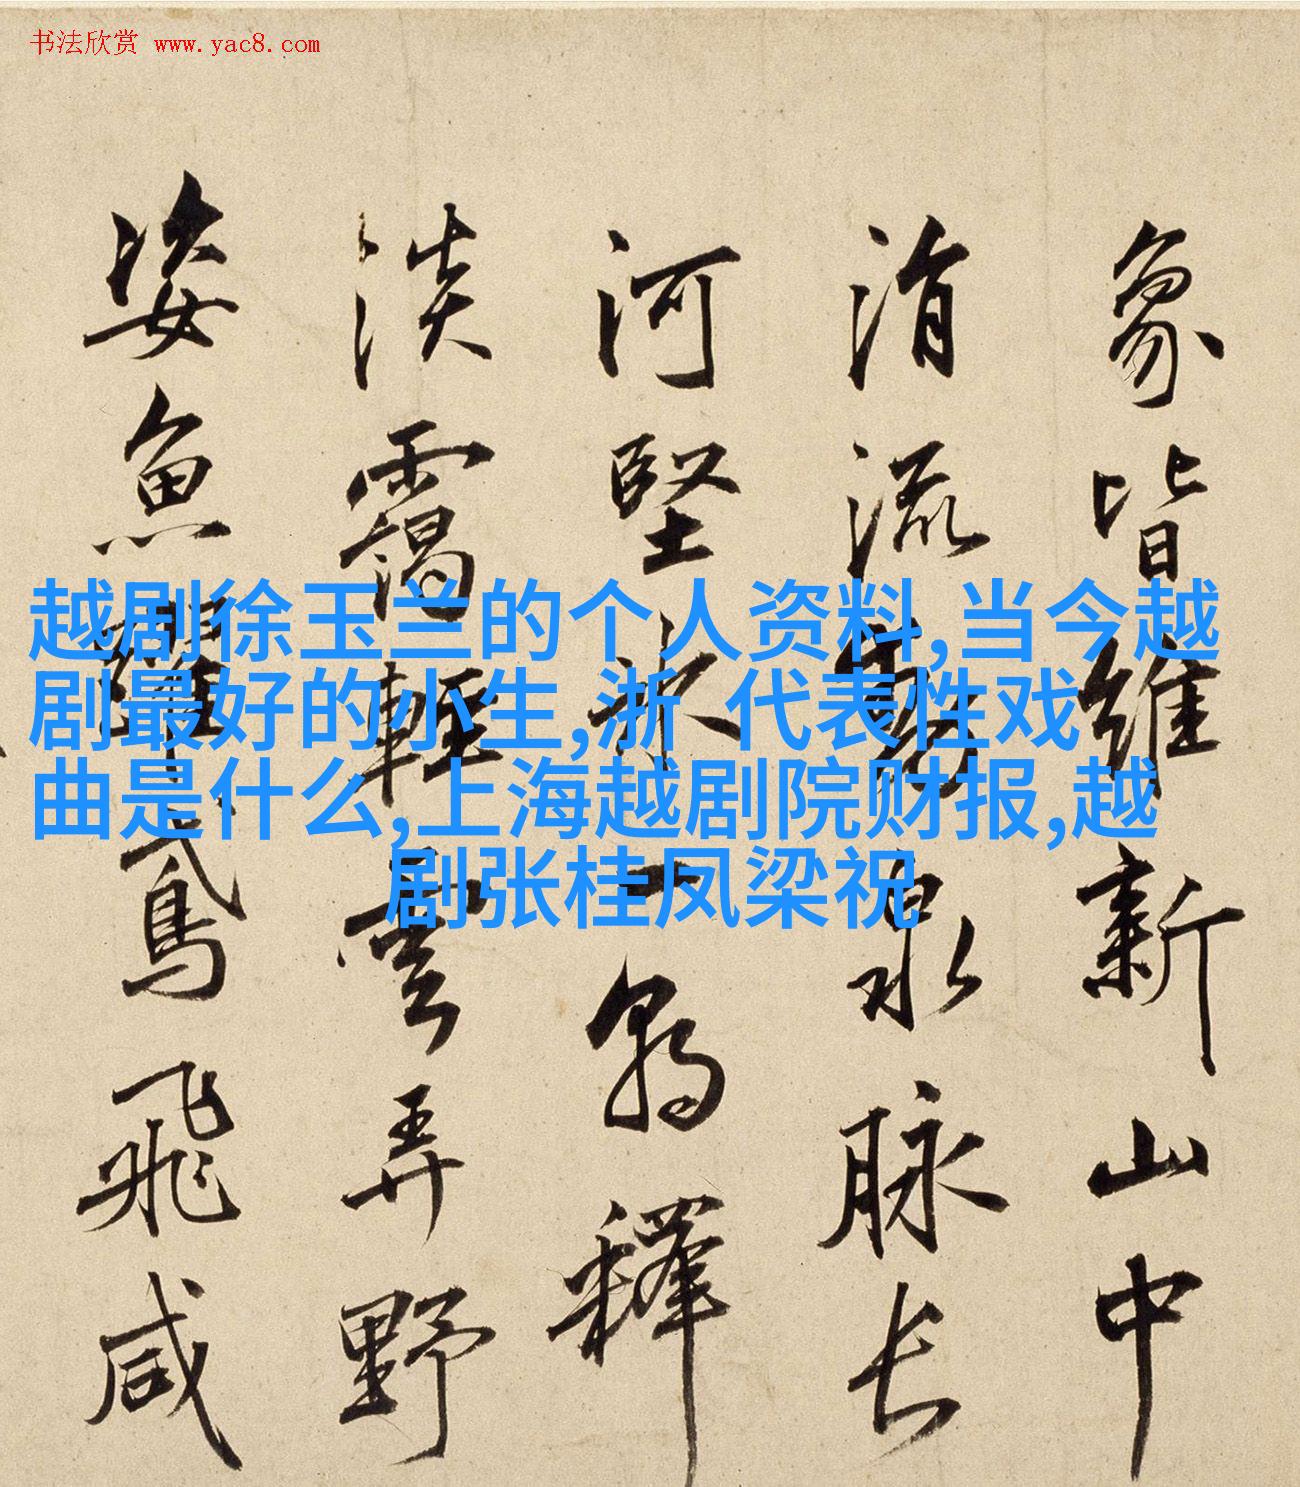 书法欣赏 www.yac8.com
象皆维新山中
消流泉脉长
河坚冰一朝释
淡霭轻云弄野
姿鱼跃鸢飞咸
越剧徐玉兰的个人资料,当今越
剧最好的小生,浙 代表性戏
曲是什么,上海越剧院财报,越
剧张桂凤梁祝